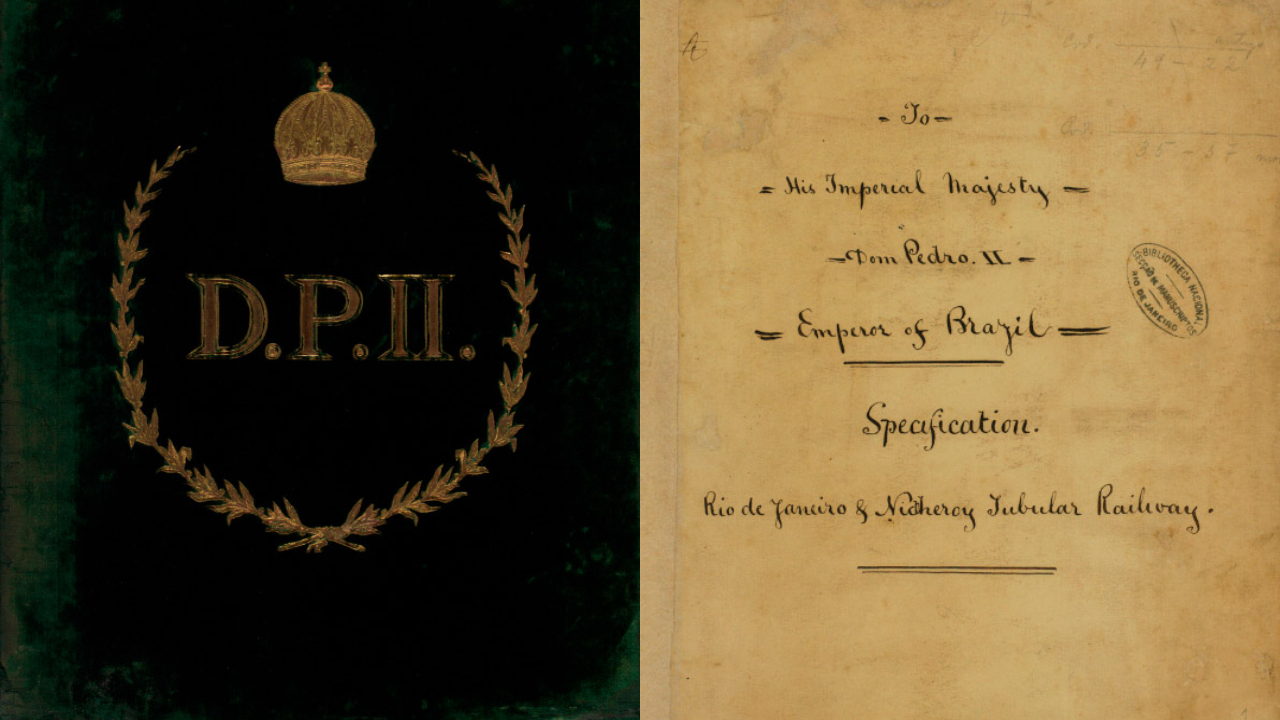 D.P.II.
- To -
= His Imperial Majesty =
- Dom Pedro. II -
= Emperor of Brazil =
Specification.
Rio de Janeiro & Nictheroy Tubular Railway.
BIBLIOTHECA NACIONAL
SECÇÃO M. MANUSCRIPTOS
RIO DE JANEIRO
41-22
35-37